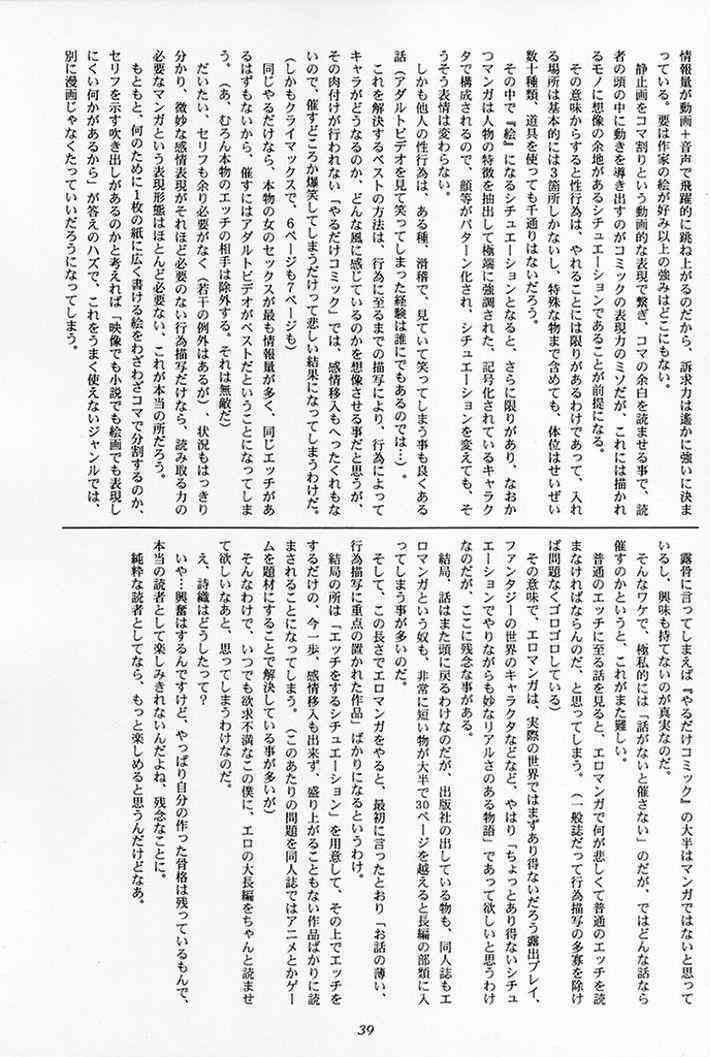 情報量が動画＋音声で飛躍的に跳ね上がるのだから、訴求力は遥かに強いに決ま
っている。要は作家の絵が好み以上の強みはどこにもない。
　静止画をコマ割りという動画的な表現で繋ぎ、コマの余白を読ませる事で、読
者の頭の中に動きを導き出すのがコミックの表現力のミソだが、これには描かれ
るモノに想像の余地があるシチュエーションであることが前提になる。
　その意味からすると性行為は、やれることには限りがあるわけであって、入れ
る場所は基本的には３箇所しかないし、特殊な物まで含めても、体位はせいぜい
数十種類、道具を使っても千通りはないだろう。
　その中で『絵』になるシチュエーションとなると、さらに限りがあり、なおか
つマンガは人物の特徴を抽出して極端に強調された、記号化されているキャラク
タで構成されるので、顔等がパターン化され、シチュエーションを変えても、そ
うそう表情は変わらない。
　しかも他人の性行為は、ある種、滑稽で、見ていて笑ってしまう事も良くある
話（アダルトビデオを見て笑ってしまった経験は誰にでもあるのでは…）。
　これを解決するベストの方法は、行為に至るまでの描写により、行為によって
キャラがどうなるのか、どんな風に感じているのかを想像させる事だと思うが、
その肉付けが行われない「やるだけコミック」では、感情移入もへったくれもな
いので、催すどころか爆笑してしまうだけって悲しい結果になってしまうわけだ。
（しかもクライマックスで、６ページも７ページも）
　同じやるだけなら、本物の女のセックスが最も情報量が多く、同じエッチがあ
るはずもないから、催すにはアダルトビデオがベストだということになってしま
う。（あ、むろん本物のエッチの相手は除外する。それは無敵だ）
　だいたい、セリフも余り必要がなく（若干の例外はあるが）、状況もはっきり
分かり、微妙な感情表現がそれほど必要のない行為描写だけなら、読み取る力の
必要なマンガという表現形態はほとんど必要ない、これが本当の所だろう。
　もともと、何のために１枚の紙に広く書ける絵をわざわざコマで分割するのか、
セリフを示す吹き出しがあるのかと考えれば「映像でも小説でも絵画でも表現し
にくい何かがあるから」が答えのハズで、これをうまく使えないジャンルでは、
別に漫画じゃなくたっていいだろうになってしまう。
　露骨に言ってしまえば『やるだけコミック』の大半はマンガではないと思って
いるし、興味も持てないのが真実なのだ。
　そんなワケで、極私的には「話がないと催さない」のだが、ではどんな話なら
催すのかというと、これがまた難しい。
　普通のエッチに至る話を見ると、エロマンガで何が悲しくて普通のエッチを読
まなければならんのだ、と思ってしまう。（一般誌だって行為描写の多寡を除け
ば問題なくゴロゴロしている）
　その意味で、エロマンガは、実際の世界ではまずあり得ないだろう露出プレイ、
ファンタジーの世界のキャラクタなどなど、やはり「ちょっとあり得ないシチュ
エーションでやりながらも妙なリアルさのある物語」であって欲しいと思うわけ
なのだが、ここに残念な事がある。
　結局、話はまた頭に戻るわけなのだが、出版社の出している物も、同人誌もエ
ロマンガという奴も、非常に短い物が大半で30ページを越えると長編の部類に入
ってしまう事が多いのだ。
　そして、この長さでエロマンガをやると、最初に言ったとおり「お話の薄い、
行為描写に重点の置かれた作品」ばかりになるというわけ。
　結局の所は「エッチをするシチュエーション」を用意して、その上でエッチを
するだけの、今一歩、感情移入も出来ず、盛り上がることもない作品ばかりに読
まされることになってしまう。（このあたりの問題を同人誌ではアニメとかゲー
ムを題材にすることで解決している事が多いが）
　そんなわけで、いつでも欲求不満なこの僕に、エロの大長編をちゃんと読ませ
て欲しいなあと、思ってしまうわけなのだ。
　え、詩織はどうしたって？
　いや…興奮はするんですけど、やっぱり自分の作った骨格は残っているもんで、
本当の読者として楽しみきれないんだよね、残念なことに。
　純粋な読者としてなら、もっと楽しめると思うんだけどなあ。
39